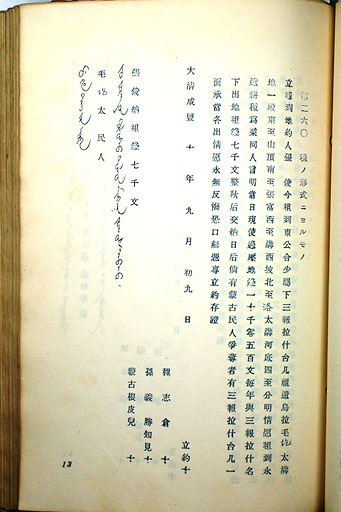 第二六〇 租ノ形式ニヨルモノ
立租到地約人張 俊今租到東公合少廳下三報拉什台几租道烏拉毛圪太溝
地一段東至山頂南至張富西至溝西坡北至洛太溝河底四至分明情愿租到永
遠耕種爲業同人言明當日現使過壓地錢一十千零五百文每年與三報拉什名
下出地租錢七千文整秋后交納日后倘有蒙古民人爭奪者有三報拉什台几一
面承當各出情愿永無反悔恐口無憑專立約存證
大清咸豐 十 年 九 月 初 九 日
立約十
程 志 倉 十
孫 義 勝 知 見 十
蒙 古 根 皮 兒 十
張 俊 納 租 錢 七 千 文
毛 圪 太 民 人
13